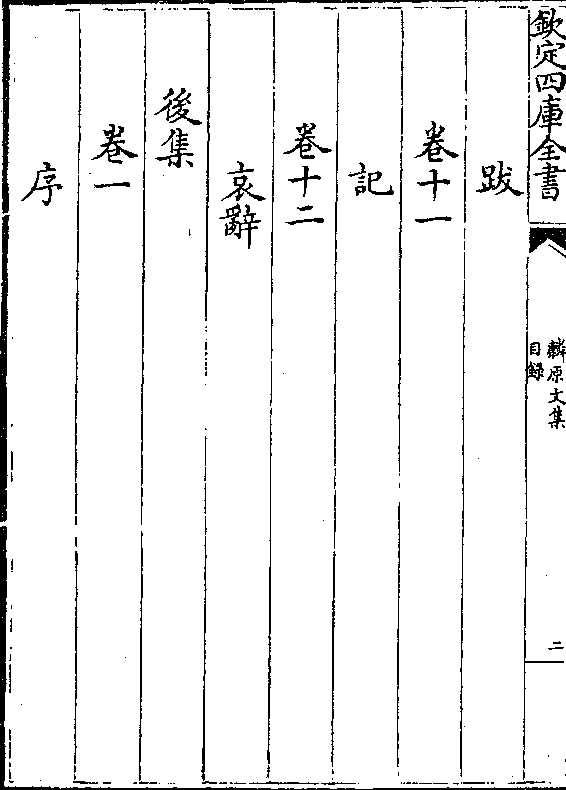 欽定四庫全書
麟原文集
目錄
二
跋
卷十一
記
卷十二
哀辭
後集
卷一
序